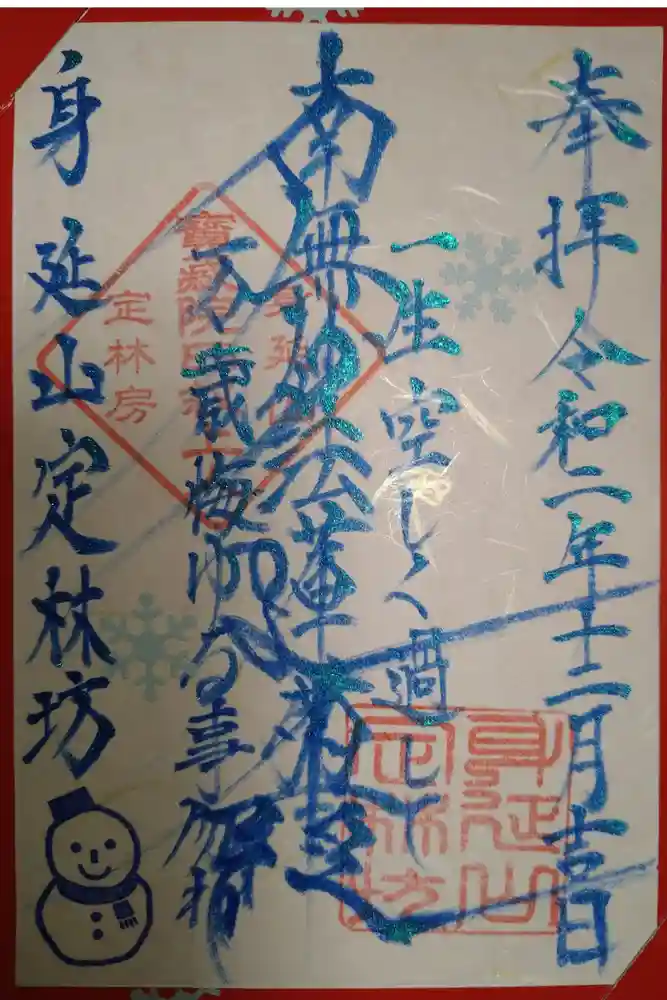 奉拝令和二年十二月吉日
一生空しく過して
南無妙法蓮華経
万歳悔ゆる事勿
身延山定林坊
身延山
定林房
身延山
定林坊